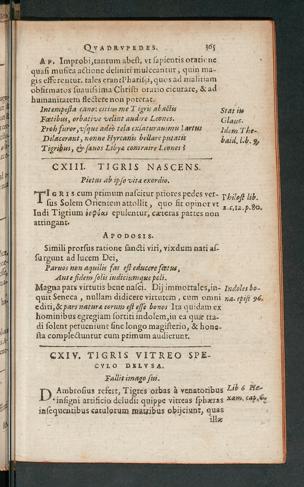 QVADRVPEDES. 365
AP. Improbi, tantum abest, vt sapientis oratione
quasi musica actione deliniti mulceantur, quin magis
efferentur. tales erant Pharisæi, quos ad malitiam
obfirmatos suauissima Christi oratio cicurare, & ad
humanitatem flectere non poterat.
Intempesta cano: citius me Tigris abactis
Fœtibus, orbatiue velint audire Leones.
Proh furor, vsque adeò tela exsaturauimus artus
Dilacerant, nonne Hyrcanis bellare putatis
Tigribus, & sauos Libya contraire Leones?
Stat in
Glauc.
Idem The-
baid. lib. 9.
CXIII. TIGRIS NASCENS.
Pietas ab ipso vitæ exordio.
TIGRIS cum primum nascitur priores pedes ver-
sus Solem Orientem attollit, quo fit opinor vt
Indi Tigrium epulentur, cæteras partes non
attingant.
Philost lib.
2. c, 12. p. 80.
APODOSIS.
Simili prorsus ratione sancti viri, vixdum nati as-
surgunt ad lucem Dei,
Paruos non aquilis fas est educere fœtus,
Ante fidem solis iudiciumque poli.
Magna pars virtutis bene nasci. Dij immortales, in-
quit Seneca, nullam didicere virtutem, cum omni
editi, & pars naturæ eorum est esse bonos Ita quidam ex
hominibus egregiam sortiti indolem, in ea quæ tra-
di solent perueniunt sine longo magisterio, & hone-
sta complectuntur cum primum audierunt.
Indoles bo-
na. epist 96.
CXIV. TIGRIS VITREO SPE-
CVLO DELVSA.
Fallit imago sui.
D. Ambrosius refert, Tigres orbas à venatoribus
insigni artificio deludi: quippe vitreas sphæras
insequentibus catulorum matribus obijciunt, quas
illæ
Lib 6 He-
xam. cap. 4